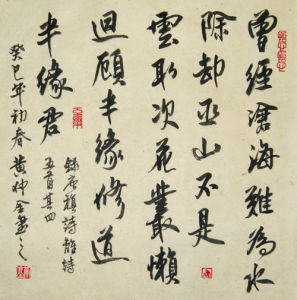 曾經滄海難為水
除却巫山不是
雲取次花叢懶
迴顧半緣修道
半緣君
錄唐積詩離詩
五首其四
癸巳年初春黄仲金書之